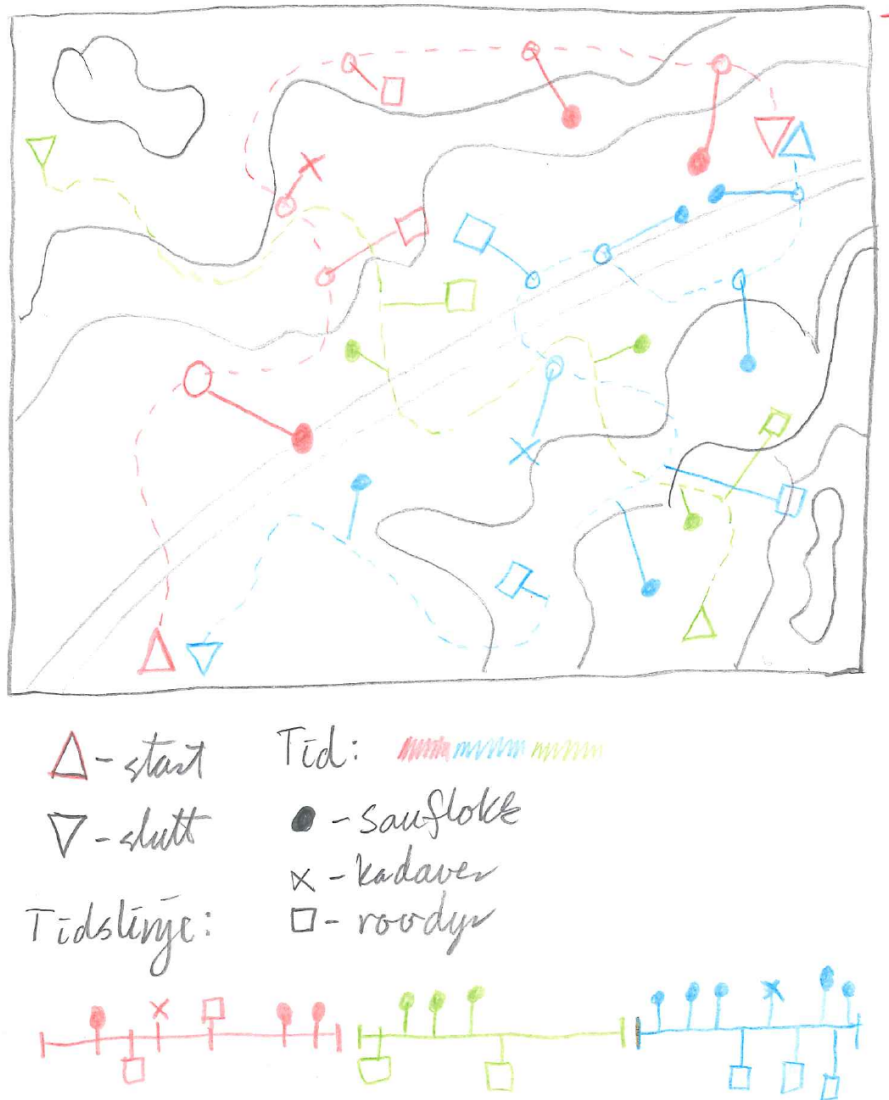 △ - start
Tid:
▽ - slutt
● - sauflokk
x - kadaver
□ - rovdyr
Tidslinje: